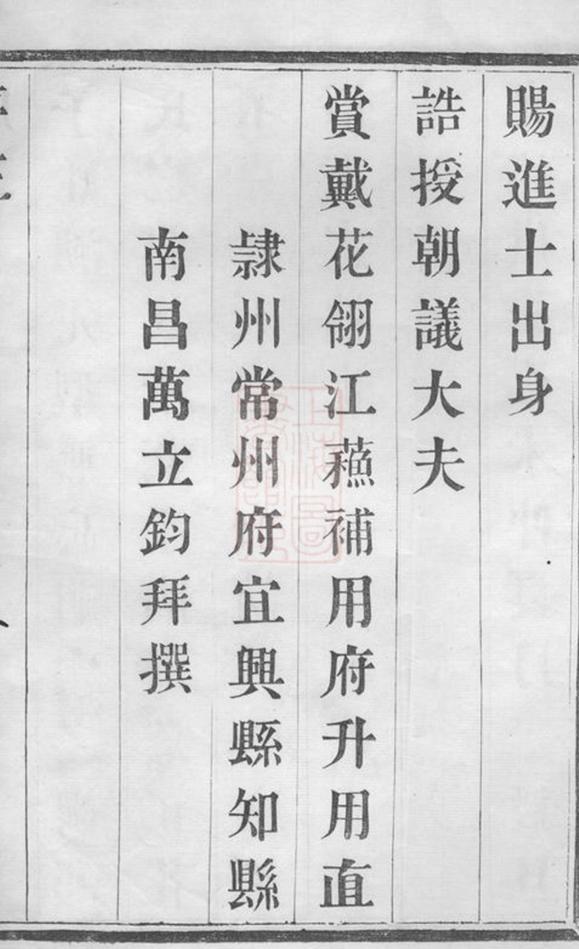 賜進士出身
誥授朝議大夫
賞戴花翎江蘓補用府升用直
隷州常州府宜興縣知縣
南昌萬立鈞拜撰